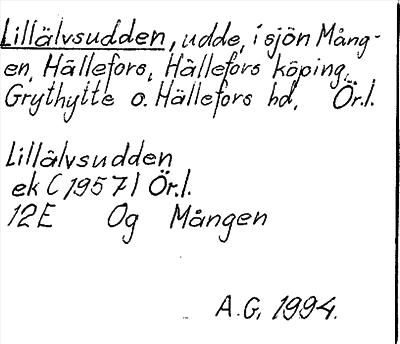 Lillälvsudden, udde, i sjön Mång-
en, Hällefors, Hällefors köping,
Grythytte o. Hällefors hd, Ör.l.
Lillälvsudden
ek C 1957 / Ör.l.
12E Og Mången
A.G, 1994.